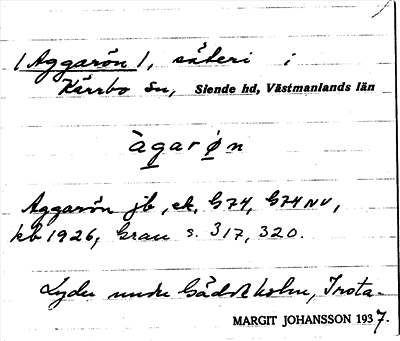 /Aggarön/, säteri i
Kärrbo sn, Siende hd, Västmanlands län
àgarǿn
Aggarön jb, ek, G74, G74NV,
kb 1926, Grau s. 317, 320.
Lyder under Gäddeholm, Irsta.
MARGIT JOHANSSON 1937.